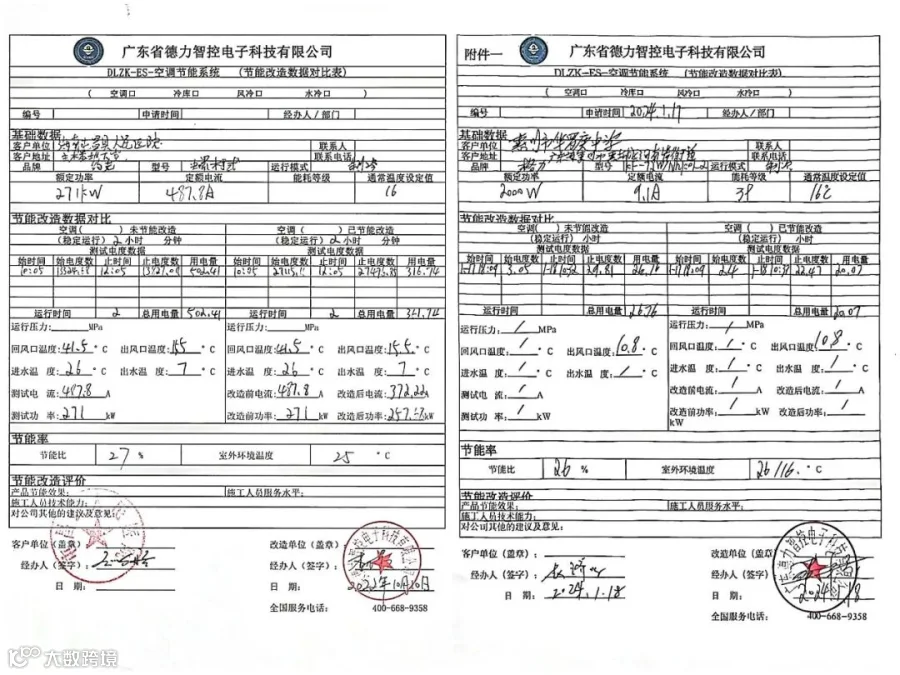 广东省德力智控电子科技有限公司
DLZK-ES-空调节能系统 (节能改造数据对比表)
( 空调口 冷库口 风冷口 水冷口 )
编号 申请时间 经办人/部门
基础数据
客户单位 联系人
客户地址 联系电话
品牌 型号 运行模式 制冷
额定功率 定额电流 能耗等级 通常温度设定值
271kW 487.8A 16
节能改造数据对比
空调( )未节能改造 空调( )已节能改造
(稳定运行) 2 小时 分钟 (稳定运行) 2 小时 分钟
测试电度数据 测试电度数据
始时间 始电度数 止时间 止电度数 用电量 始时间 始电度数 止时间 止电度数 用电量
10:05 12:05 502.41 10:05 12:05
运行时间 2 总用电量 502.41 运行时间 2 总用电量
运行压力: MPa 运行压力: MPa
回风口温度: 41.5 °C 出风口温度: 15.5 °C 回风口温度: 41.5 °C 出风口温度: 15.5 °C
进水温度: 26 °C 出水温度: 7 °C 进水温度: 26 °C 出水温度: 7 °C
测试电流: 487.8 A 改造前电流: 487.8 A 改造后电流: 372.22 A
测试功率: 271 kW 改造前功率: 271 kW 改造后功率: kW
节能率
节能比 27 % 室外环境温度 25 °C
节能改造评价
产品节能效果: 施工人员服务水平:
施工人员技术能力:
对公司其他的建议及意见:
客户单位(盖章) 改造单位(盖章)
经办人(签字): 经办人(签字):
日期: 日期: 2022年10月10日
全国服务电话: 400-668-9358
附件一
广东省德力智控电子科技有限公司
DLZK-ES-空调节能系统 (节能改造数据对比表)
( 空调口 冷库口 风冷口 水冷口 )
编号 申请时间 2024.1.17 经办人/部门
基础数据
客户单位 联系人
客户地址 联系电话
品牌 格力 型号 运行模式 制冷
额定功率 定额电流 能耗等级 通常温度设定值
2000W 9.1A 3级 16℃
节能改造数据对比
空调( )未节能改造 空调( )已节能改造
(稳定运行) 小时 (稳定运行) 小时
测试电度数据 测试电度数据
始时间 始电度数 止时间 止电度数 用电量 始时间 始电度数 止时间 止电度数 用电量
3.05 29.81 26.76 2.4 22.47 20.07
运行时间 总用电量 26.76 运行时间 总用电量 20.07
运行压力: / MPa 运行压力: / MPa
回风口温度: / °C 出风口温度: 10.8 °C 回风口温度: / °C 出风口温度: 10.8 °C
进水温度: / °C 出水温度: / °C 进水温度: / °C 出水温度: / °C
测试电流: / A 改造前电流: / A 改造后电流: / A
测试功率: / kW 改造前功率: / kW 改造后功率: / kW
节能率
节能比 26 % 室外环境温度 26/16. °C
节能改造评价
产品节能效果: 施工人员服务水平:
施工人员技术能力:
对公司其他的建议及意见:
客户单位(盖章): 改造单位(盖章)
经办人(签字): 经办人(签字):
日期: 2024.1.18 日期: 2024.1.18
全国服务电话: 400-668-9358
大数跨境